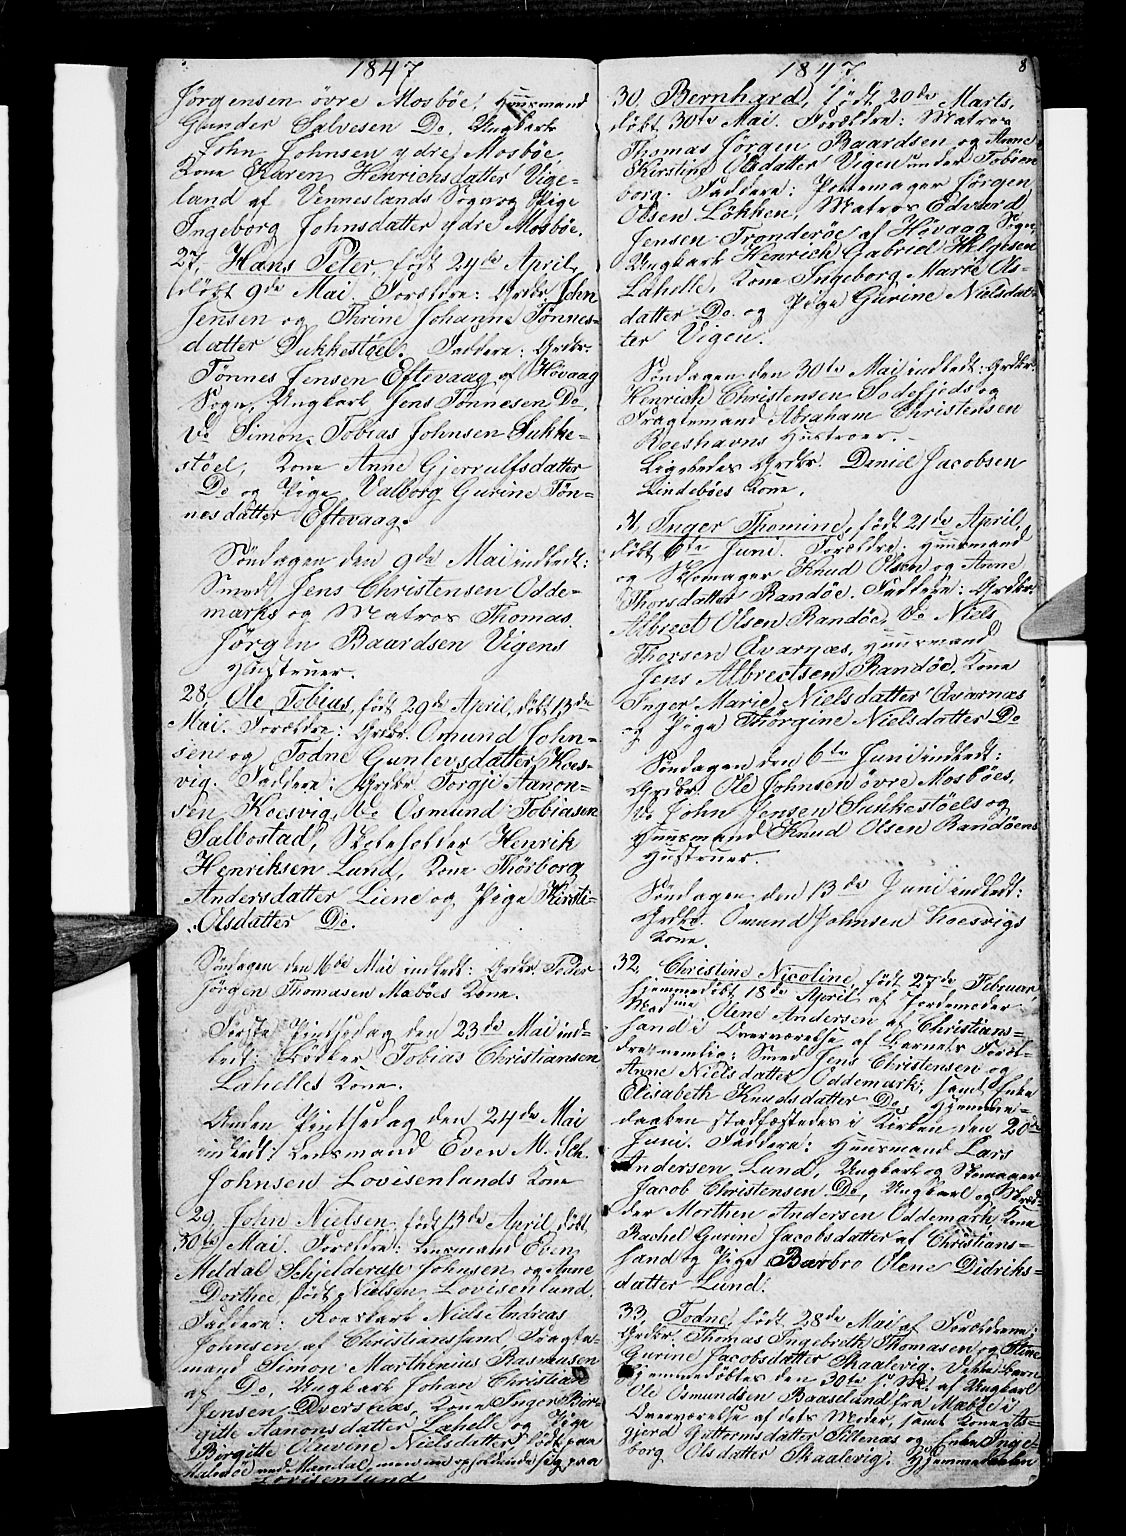 1847
Jörgensen övre Mosböe, Huusmand
Gunder Salvesen Do. Ungkarl
John Johnsen ydre Mosböe,
Kone Karen Henrichsdatter Vige-
land af Vennesland Sogn og Pige
Ingeborg Johnsdatter ydre Mosböe.
27, Hans Peter, født 24de April,
døbt 9de Mai. Forældre: Grdbr. John
Jensen og Thrine Johanne Tönnes-
datter Sukkestöel. Faddere: Grdbr.
Tönnes Jensen Eftevaag af Høvaag
Sogn, Ungkarl Jens Tönnesen Do,
Do Simon Tobias Johnsen Sukke-
stöel, Kone Anne Gjerrulfsdatter
Do og Pige Valborg Gurine Tön-
nesdatter Eftevaag.
Söndagen den 9de Mai indledt:
Smed Jens Christensen Odde-
marks og Matros Thomas
Jörgen Baardsen Vigens
Hustruer.
28, Ole Tobias, født 29de April, døbt 13de
Mai. Forældre: Grdbr. Omund John-
sen og Todne Gunlevsdatter Koes-
vig. Faddere: Grdbr Torgji Aanon-
sen Koesvig, Do Osmund Tobiasen
Salbostad, Skoleholder Henrik
Henriksen Lund, Kone Thörborg
Andersdatter Liene og Pige Kirsti
Olsdatter Do.
Söndagen den 16de Mai indledt: Grdbr. Peder
Jörgen Thomasen Maböes Kone.
Første Pintsedag den 23de Mai ind-
ledt: Bödker Tobias Christiansen
Lahelles Kone.
Anden Pintsedag den 24de Mai
indledt: Lensmand Even M. Sch.
Johnsen Lovisenlunds Kone
29, John Nielsen, født 13de April, døbt
30te Mai. Forældre: Lensmand Even
Meldal Schjelderup Johnsen og Anne
Dorthea, født Nielsen Lovisenlund.
Faddere: Niels Andreas
Johnsen af Christianssand, Fragte-
mand Simon Marthinius Rasmusen
af Do, Ungkarl Johan Christian
Jensen Dversnæs, Kone Inger Bir-
gitte Aanonsdatter Lahelle og Pige
Birgitte Nielsdatter, født paa
ved Mandal, men nu opholdende sig paa
Lovisenlund
1847 8
30, Bernhard, født 20de Marts,
døbt 30te Mai. Forældre: Matros
Thomas Jörgen Baardsen og Anne
Kirstine Olsdatter Vigen under Tobien-
borg. Faddere: Pottemager Jörgen
Olsen Lökken, Matros Edvard
Jensen Trondsöe af Høvaag Sogn,
Ungkarl Henrich Gabriel Helgesen
Lahelle, Kone Ingeborg Marie Ols-
datter Do. og Pige Gurine Nielsdat-
ter Vigen.
Söndagen den 30te Mai indledt: Grdbr.
Henrich Christensen Sodefjeds og
Fragtemand Abraham Christensen
Roeshavns Hustruer.
Ligeledes Grdbr. Daniel Jacobsen
Lindeböes Kone.
31, Inger Thomine, født 21de April,
døbt 6te Juni. Forældre: Huusmand
og Skomager Knud Olsen og Anne
Thorsdatter Randöe. Faddere: Grdbr.
Albrect Olsen Randöe, Do Niels
Thorsen Qvarnæs, Huusmand
Jens Albrectsen Randöe, Kone
Inger Marie Nielsdatter Qvarnæs
og Pige Thörgine Nielsdatter Do
Söndagen den 6te Juni indledt:
Grdbr. Ole Johnsen övre Mosböes,
Do John Jensen Sukkestöels og
Huusmand Knud Olsen Randöens
Hustruer.
Söndagen den 13de Juni indledt:
Grdbr. Omund Johnsen Koesvigs
Kone.
32, Christine Nicoline, født 27de Februar,
hjemmedøbt 18de April af Jordemoder
Madme Olene Andersen af Christians-
sand i Overværelse af Barnets Foræl-
dre nemlig: Smed Jens Christensen og
Anne Nielsdatter Oddemark, samt Enke
Elisabeth Knudsdatter Do, Hjemme-
daaben stadfæstedes i Kirken den 20de
Juni. Faddere: Huusmand Lars
Andersen Lund, Ungkarl og Skomager
Jacob Christensen Do, Ungkarl og Skræd-
der Morthen Andersen Oddemark, Kone
Rachel Gurine Jacobsdatter af Christians-
sand og Pige Barbro Olene Didriks-
datter Lund.
33, Todne, født 28de Mai af Forældrene:
Grdbr. Thomas Ingebreth Thomasen og Stine
Gurine Jacobsdatter Skaalevig. Dette Barn
hjemmedøbtes den 30te s. M. af Ungkarl
Ole Osmundsen Baaselund fra Maböe i
Overværelse af dets Moder, samt Kone As-
gjerd Guttormsdatter Sittenæs og Enke Inge-
borg Olsdatter Skaalevig. Hjemmedaaben